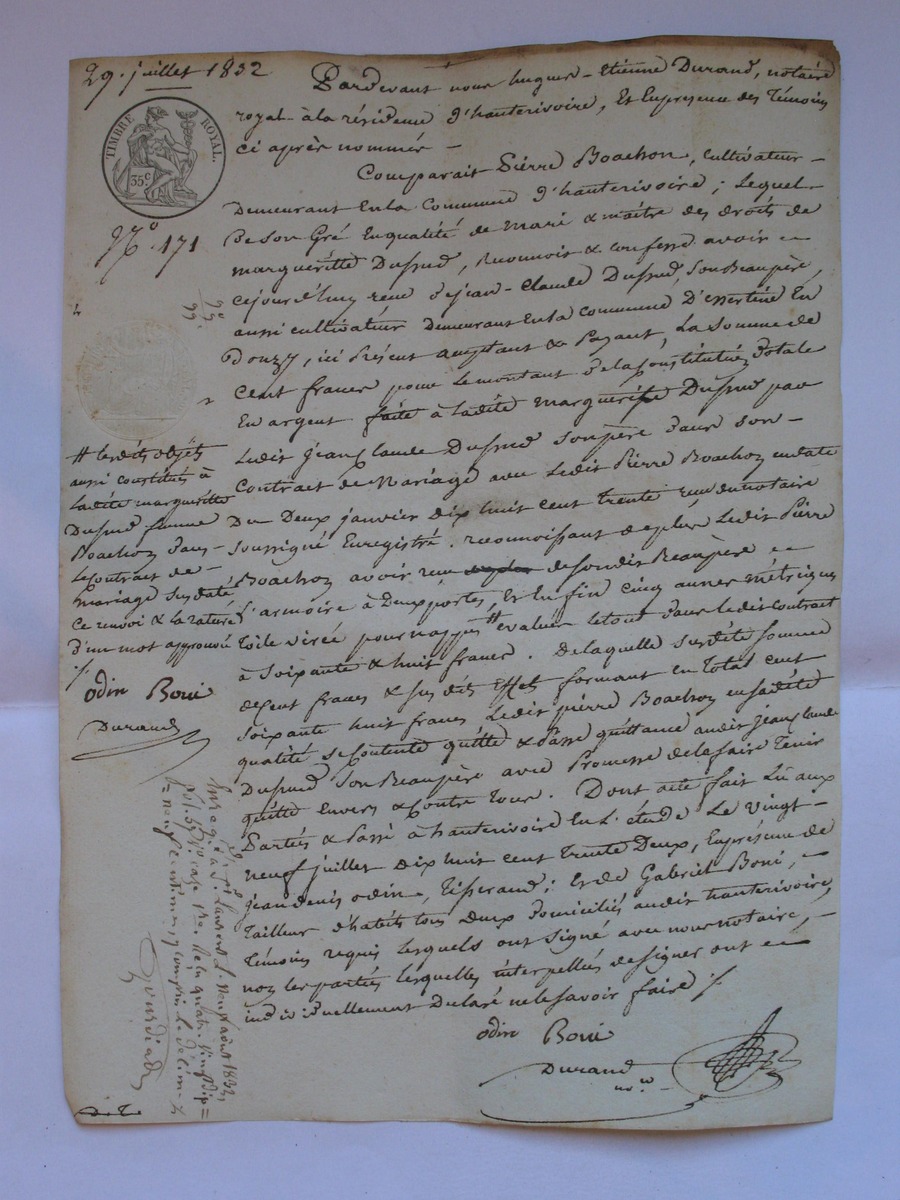 29. juillet 1832
TIMBRE ROYAL.
35 c
N.o 171
Pardevant nous hugues-Etienne Durand, notaire
royal à la résidence d'hauterivoire, Et Enpresence des Témoins
ci après nommés -
Comparait Pierre Boachon, cultivateur -
Demeurant En la Commune d'hauterivoire ; Lequel -
De son Gré En qualité de Mari & maître des droits de
marguéritte Dufned, reconnoit & confesse avoir
cejourd'huy reçu de jean-Claude Dufned, son Beaupère,
aussi cultivateur Demeurant En la commune D'essertine En
Donzy, ici présent acceptant & Payant, La Somme de
Cent francs pour Le montant de la constitution dotale
En argent faite à ladite marguéritte Dufned par
Ledit jean Claude Dufned son père dans son -
Contrat de Mariage avec Ledit Pierre Boachon en date
Du Deux janvier dix huit cent trente reçu du notaire
soussigné Enregistré. reconnoissant de plus Ledit Pierre
Boachon avoir reçu de sondit Beaupère
L'armoire à Deux portes, Et En fin cinq aunes métriques
Toile virée pour nappes # evalués Le tout dans Le dit contrat
à Soixante & huit francs. de laquelle susdite somme
de cent francs & susdits Effets formant en Total cent
soixante huit francs Le dit pierre Boachon en sadite
qualité se Contente quitte & Passe quittance audit jean Claude
Dufned son Beaupère avec Promesse de le faire Tenir
quitte Envers & Contre Tous. Dont acte fait Lu aux
Parties & Passé à hauterivoire En L'étude Le vingt -
neuf juillet dix huit cent trente Deux, En présence de
jean denis odin, Tisserand ; Et de Gabriel Boni, -
Tailleur d'habits tous deux domiciliés audit hauterivoire,
Témoins requis lesquels ont signé avec nous notaire, -
non les parties lesquelles interpellées de signer ont
individuellement Déclaré ne le savoir faire ./.
odin Boni
Durand
no.re
# lesdits objets
aussi constitués à
Ladite marguéritte
Dufned femme
Boachon dans -
Le Contrat de -
mariage Susdaté
Ce renvoi & la rature
d'un mot approuvé
./.
odin Boni
Durand
Enregis. à St. Laurent L. Neuf août 1832,
vol. 59 case 1re. Reçu quatre vingt dix =
= neuf centimes y compris le décime